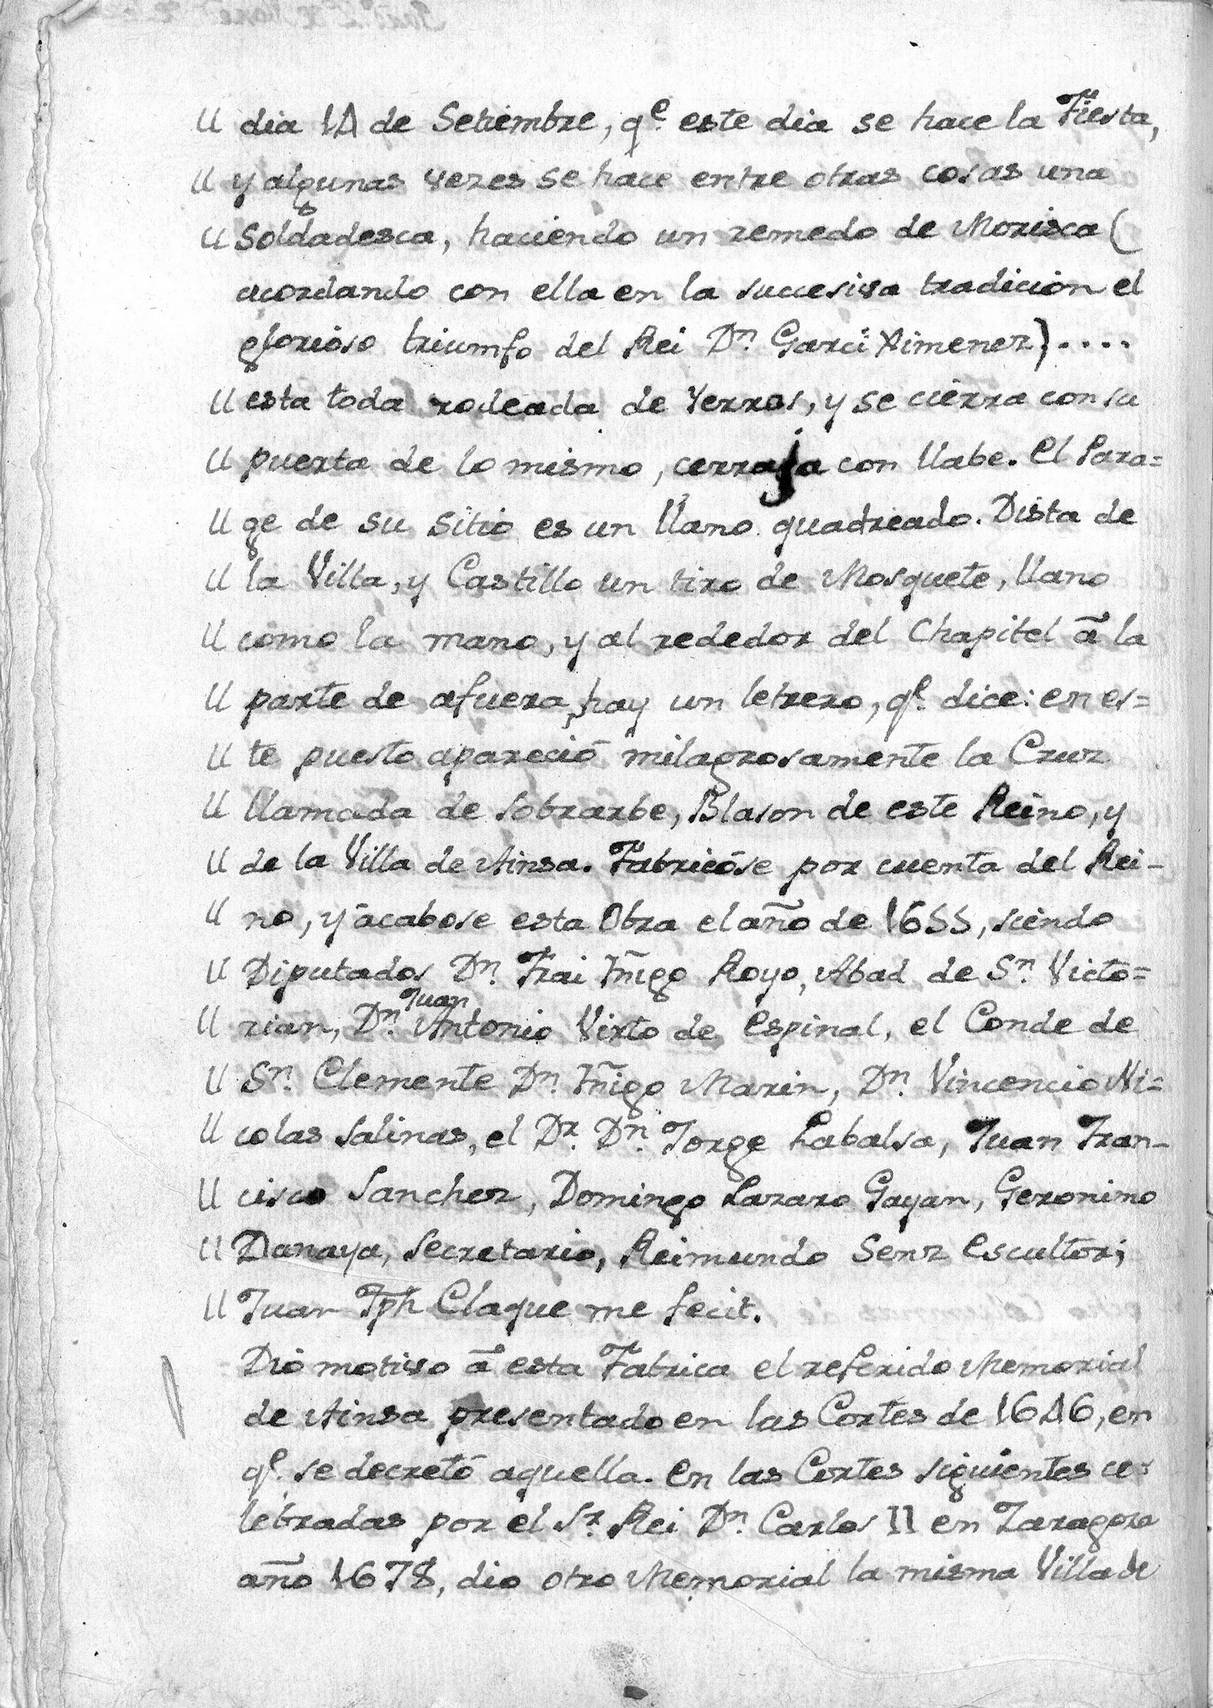 " dia 14 de Setiembre, q.e este dia se hace la Fiesta,
" y algunas vezes se hace entre otras cosas una
" Soldadesca, haciendo un remedo de Morisca (
acordando con ella en la succesiva tradicion el
glorioso triumfo del Rei D.n Garci Ximenez)....
" esta toda rodeada de Yerros, y se cierra con su
" puerta de lo mismo, cerraja con llabe. El Para=
" ge de su sitio es un llano quadreado. Dista de
" la Villa, y Castillo un tiro de Mosquete, llano
" como la mano, y al rededor del Chapitel ã la
" parte de afuera, hay un letrero, q.e dice: en es=
" te puesto apareció milagrosamente la Cruz
" llamada de Sobrarbe, Blason de este Reino, y
" de la Villa de Ainsa. Fabricóse por cuenta del Rei-
" no, y ãcabose esta Obra el año de 1655, siendo
" Diputados D.n Frai Iñigo Royo, Abad de S.n Victo=
" rian, D.n Juan Antonio Virto de Espinal, el Conde de
" S.n Clemente D.n Iñigo Marin, D.n Vincencio Ni=
" colas Salinas, el D.r D.n Jorge Labalsa, Juan Fran-
" cisco Sanchez, Domingo Lazaro Gayan, Geronimo
" Danaya, Secretario, Reimundo Senz Escultor;
" Juan Jph Claque me fecit.
Dió motivo ã esta Fabrica el referido Memorial
de Ainsa presentado en las Cortes de 1646, en
q.e se decretó aquella. En las Cortes siguientes ce=
lebradas por el S.r Rei D.n Carlos II en Zaragoza
año 1678, dio otro Memorial la misma Villa de